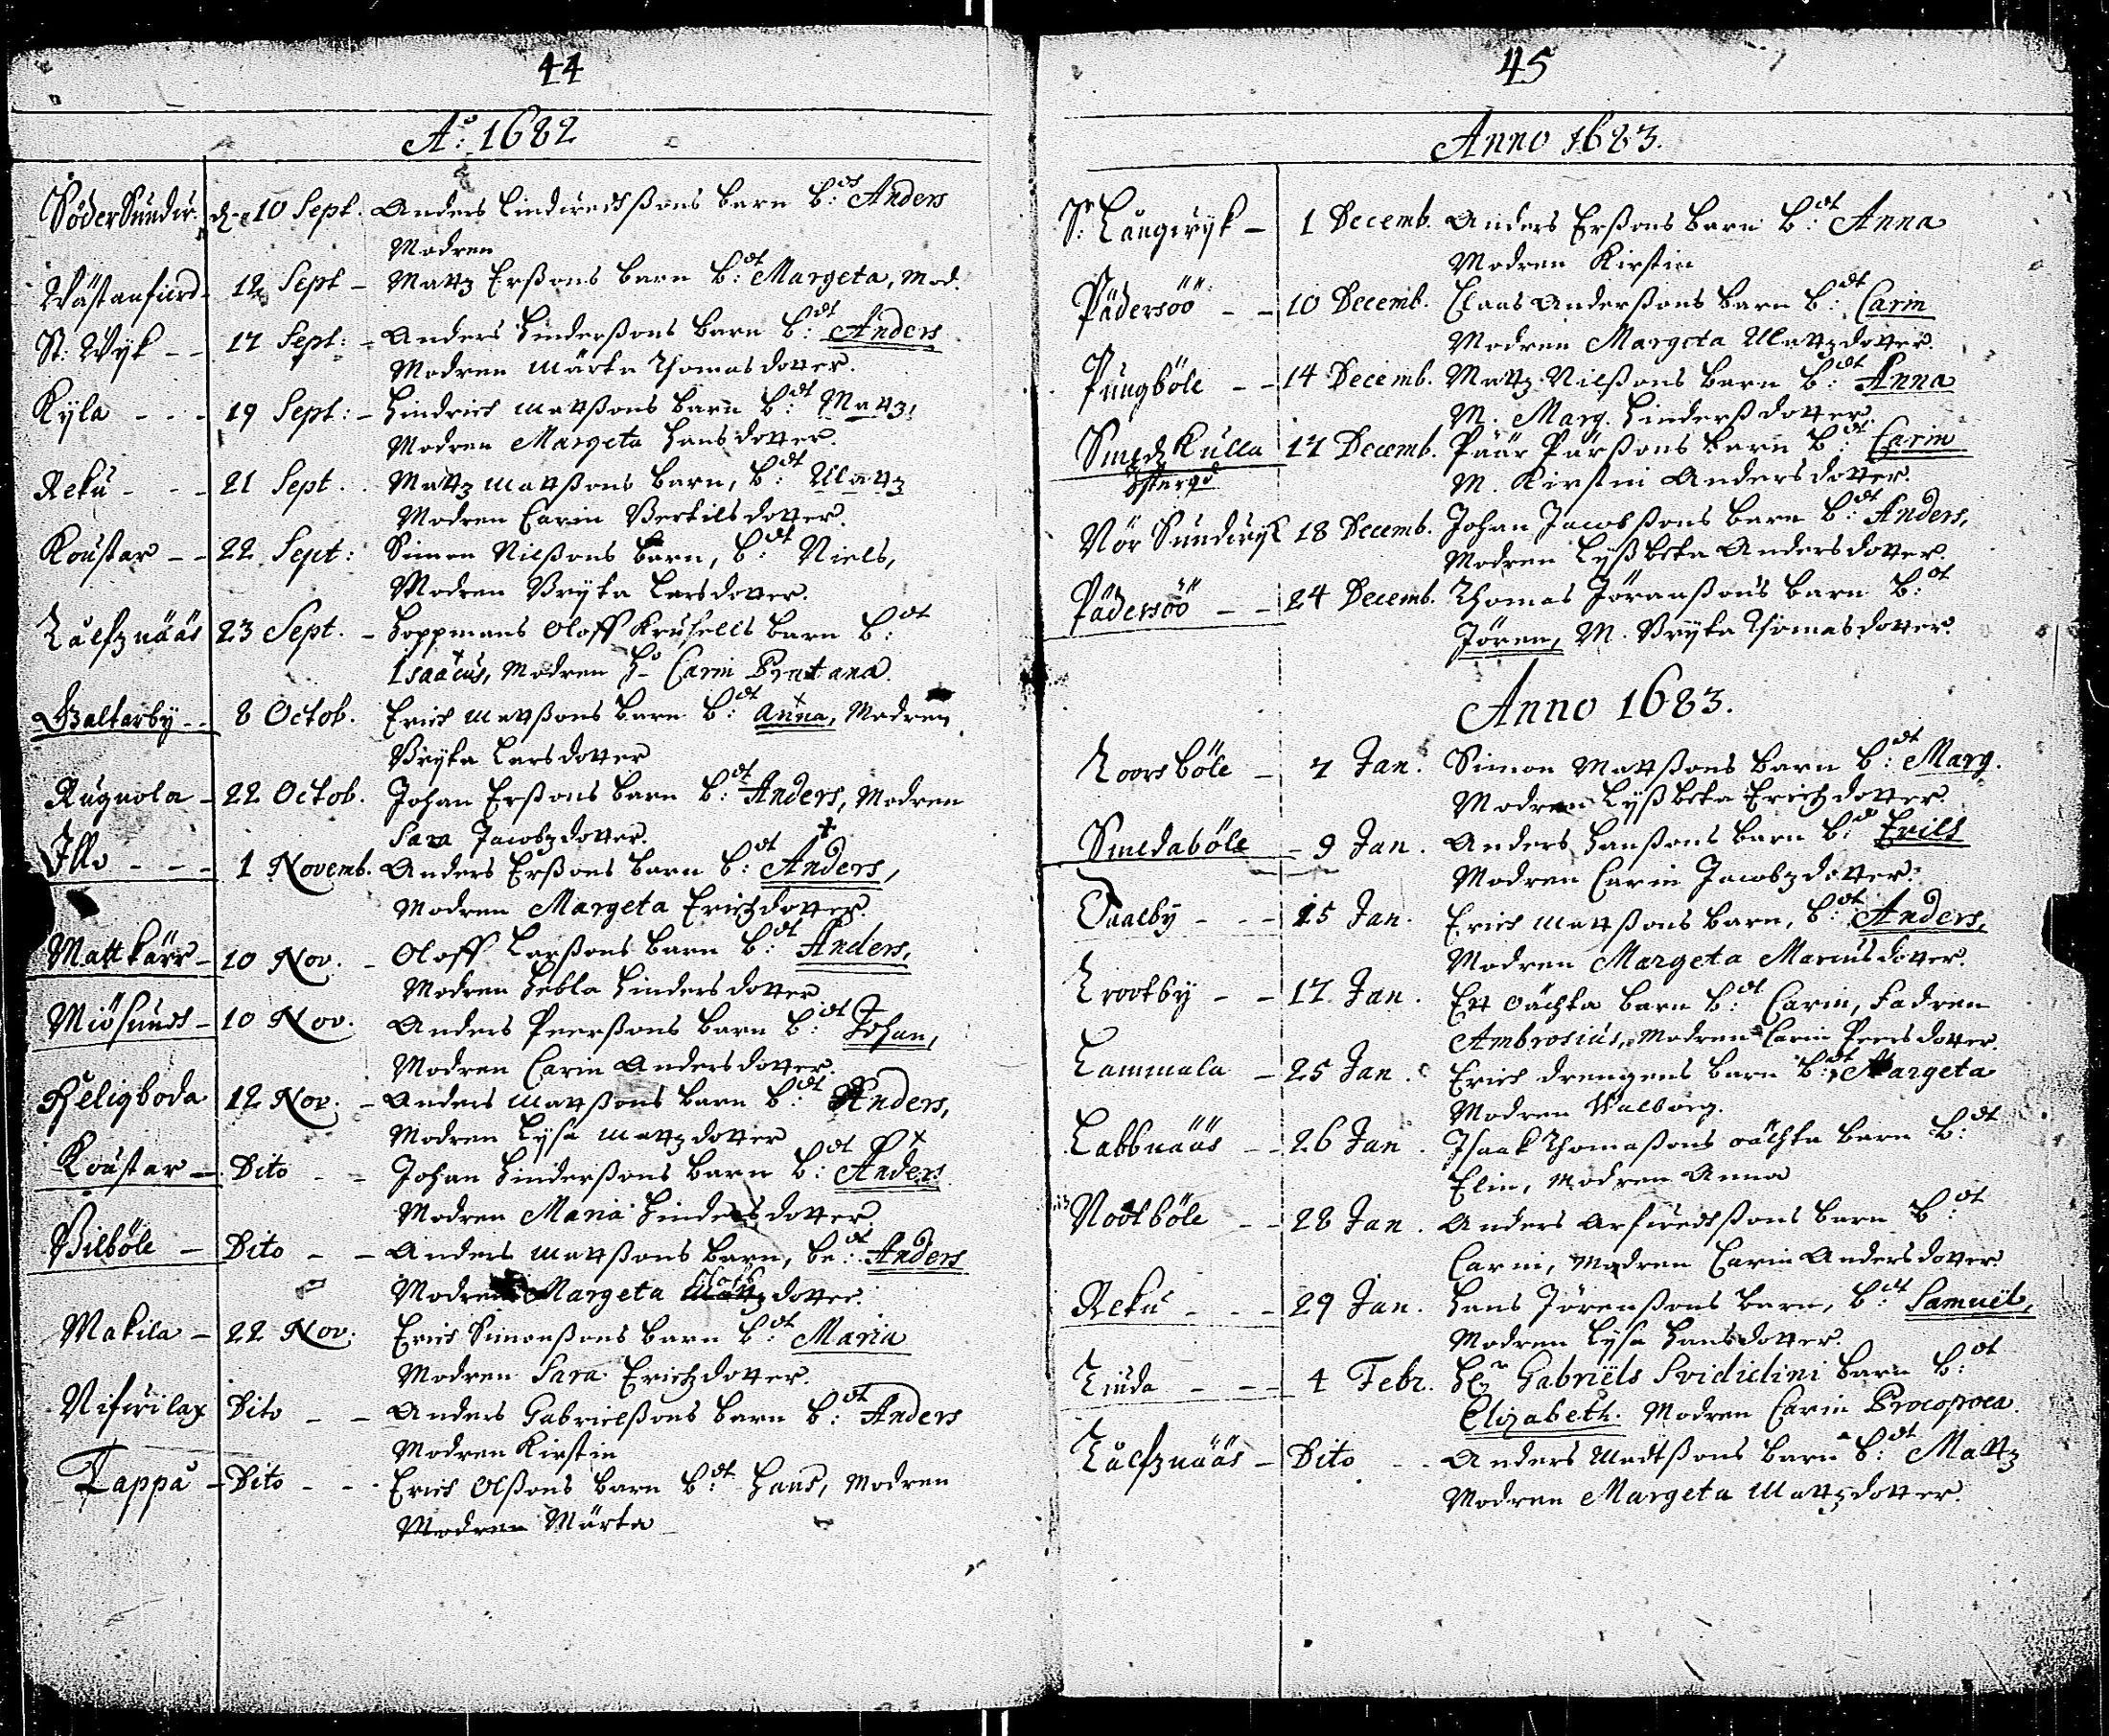 44
Ao: 1682
SöderSundw. d. 10 Sept. Anders Lindwedhßons barn b:dt Anders
Modren
Wästanfierd - 12 Sept - Mattz Erßons barn b:dt Margeta, Mod.
St: Wyk - - 17 Sept: - Anders Hinderßons barn b:dt Anders
Modren Märta Thomasdotter.
Kyla - - - 19 Sept: - Hindrich Mattßons barn b:dt Mattz,
Modren Margeta Hansdotter.
Reku - - - 21 Sept. - Mattz Mattßons barn, b:dt Mattz
Modren Carin Bertilsdotter.
Koustar - - 22 Sept: Simon Nilßons barn, b:dt Niels,
Modren Bryta Larsdotter.
Lålfznääs 23 Sept. - Hoppmans Oloff Krusells barn b:dt
Isaacus, Modren H. Carin Pratana.
Galtarby - - 8 Octob. Erich Mattßons barn b:dt Anna, Modren
Bryta Larsdotter
Rugnola - 22 Octob. Johan Erßons barn b:dt Anders, Modren
Sara Jacobzdotter.
Illo - - - 1 Novemb. Anders Erßons barn b:dt Anders,
Modren Margeta Erichzdotter.
Mattkärr - 10 Nov. - Oloff Larßons barn b:dt Anders,
Modren Hebla Hindersdotter
Miösund - 10 Nov. Anders Peerßons barn b:dt Johan,
Modren Carin Andersdotter.
Heligboda 12 Nov. - Anders Mattßons barn b:dt Anders,
Modren Lysa Mattzdotter
Koustar - Dito - - Johan Hinderßons barn b:dt Anders
Modren Maria Hindersdotter
Bilböle - Dito - - Anders Mattßons barn, be:dt Anders
Modren Margeta dotter.
Makila - 22 Nov. Erich Simonßons barn b:dt Maria
Modren Sara Erichzdotter.
Nifwilax Dito - - Anders Gabrielßons barn b:dt Anders
Modren Kirstin
Tappå - Dito - - Erich Olßons barn b:dt Hans, Modren
Modren Märta
45
Anno 1683.
S: Långwyk - 1 Decemb. Anders Erßons barn b:dt Anna
Modren Kirstin
Pädersöö - - 10 Decemb. Claas Anderßons barn b:dt Carin
Modren Margeta Mattzdotter.
Pungböle - - 14 Decemb. Mattz Nilßons barn b:dt Anna
M. Marg. Hinderßdotter.
Smedzkulla 17 Decemb. Päär Pärßons barn b:dt Carin
Östergd M. Kirstin Andersdotter.
Nör Sundwyk 18 Decemb. Johan Jacobßons barn b:dt Anders,
Modren Lyßbeta Andersdotter.
Pädersöö - - 24 Decemb. Thomas Jöranßons barn b:dt
Jören, M. Bryta Thomasdotter.
Anno 1683.
Loorsböle - 7 Jan. Simon Mattßons barn b:dt Marg.
Modren Lyßbeta Erichzdotter.
Smedaböle - 9 Jan. Anders Hanßons barn b:dt Erich
Modren Carin Jacobzdotter.
Daalby - - - 15 Jan. Erich Mattßons barn, b:dt Anders,
Modren Margeta Marcusdotter.
Krootby - - 17 Jan. Ett oächta barn b:dt Carin, Fadren
Ambrosius, Modren Carin Peersdotter.
Lammala - 25 Jan. Erich drengens barn b:dt Margeta
Modren Walborg.
Labbnääs - - 26 Jan. Isaak Thomaßons oächta barn b:dt
Elin, Modren Anna
Nootböle - - 28 Jan. Anders Arfwedhßons barn b:dt
Carin, Modren Carin Andersdotter
Reku - - - 29 Jan. Hans Jörenßons barn, b:dt Samuel,
Modren Lysa Hansdotter.
Linda - - - 4 Febr. Gabriels Svidiclini barn b:dt
Elizabeth. Modren Carin Procopoea.
Lålfznääs - Dito - - Anders Madtßons barn b:dt Mattz
Modren Margeta Mattzdotter.